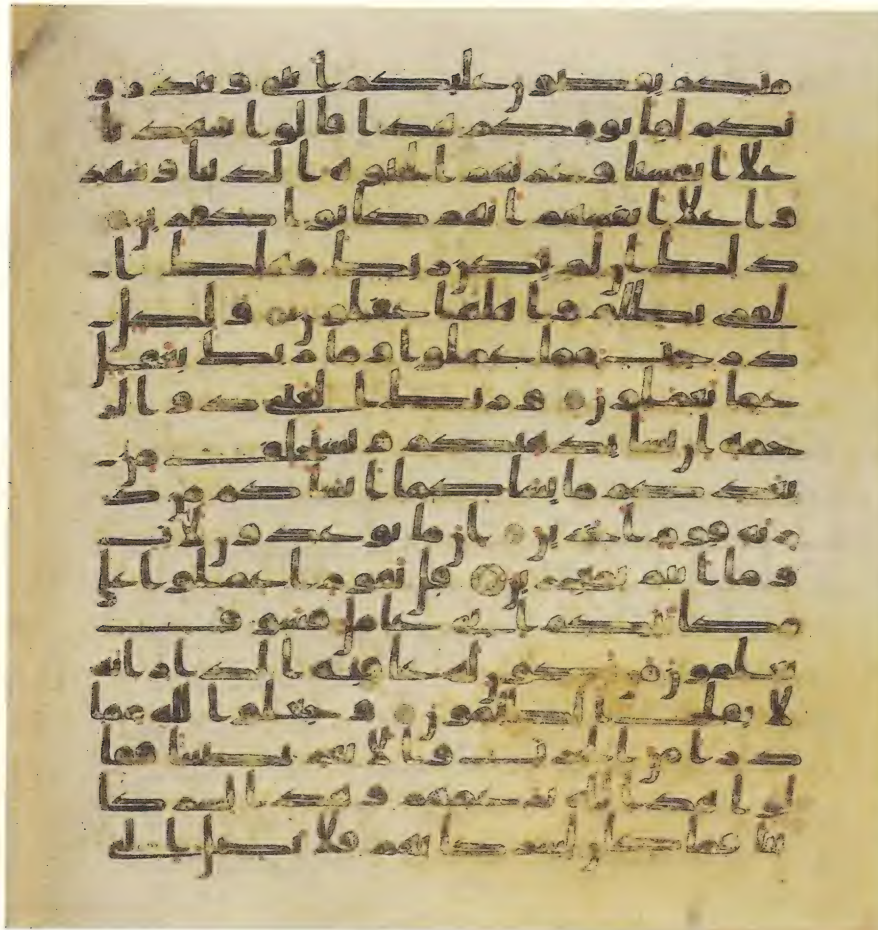 منكم يقصون عليكم ايتى وينذرو
نكم لقا يومكم هذا قالوا شهدنا
علا انفسنا وغرتهم الحيوه الدنيا وشهد
وا علا انفسهم انهم كانوا كفرين
ذلك ان لم يكن ربك مهلك ا
لقرى بظلم واهلها غفلون ولكل
درجت مما عملوا وما ربك بغفل
عما يعملون وربك الغنى ذو الر
حمه ان يشا يذهبكم ويستخلف من
بعدكم ما يشا كما انشاكم من ذ
ريه قوم اخرين ان ما توعدون لات
وما انتم بمعجزين قل يقوم اعملوا على
مكانتكم انى عامل فسوف
تعلمون من تكون له عاقبه الدار انه
لا يفلح الظلمون وجعلوا لله مما
ذرا من الحرث والانعم نصيبا فقا
لوا هذا لله بزعمهم وهذا لشركا
ئنا فما كان لشركائهم فلا يصل الى